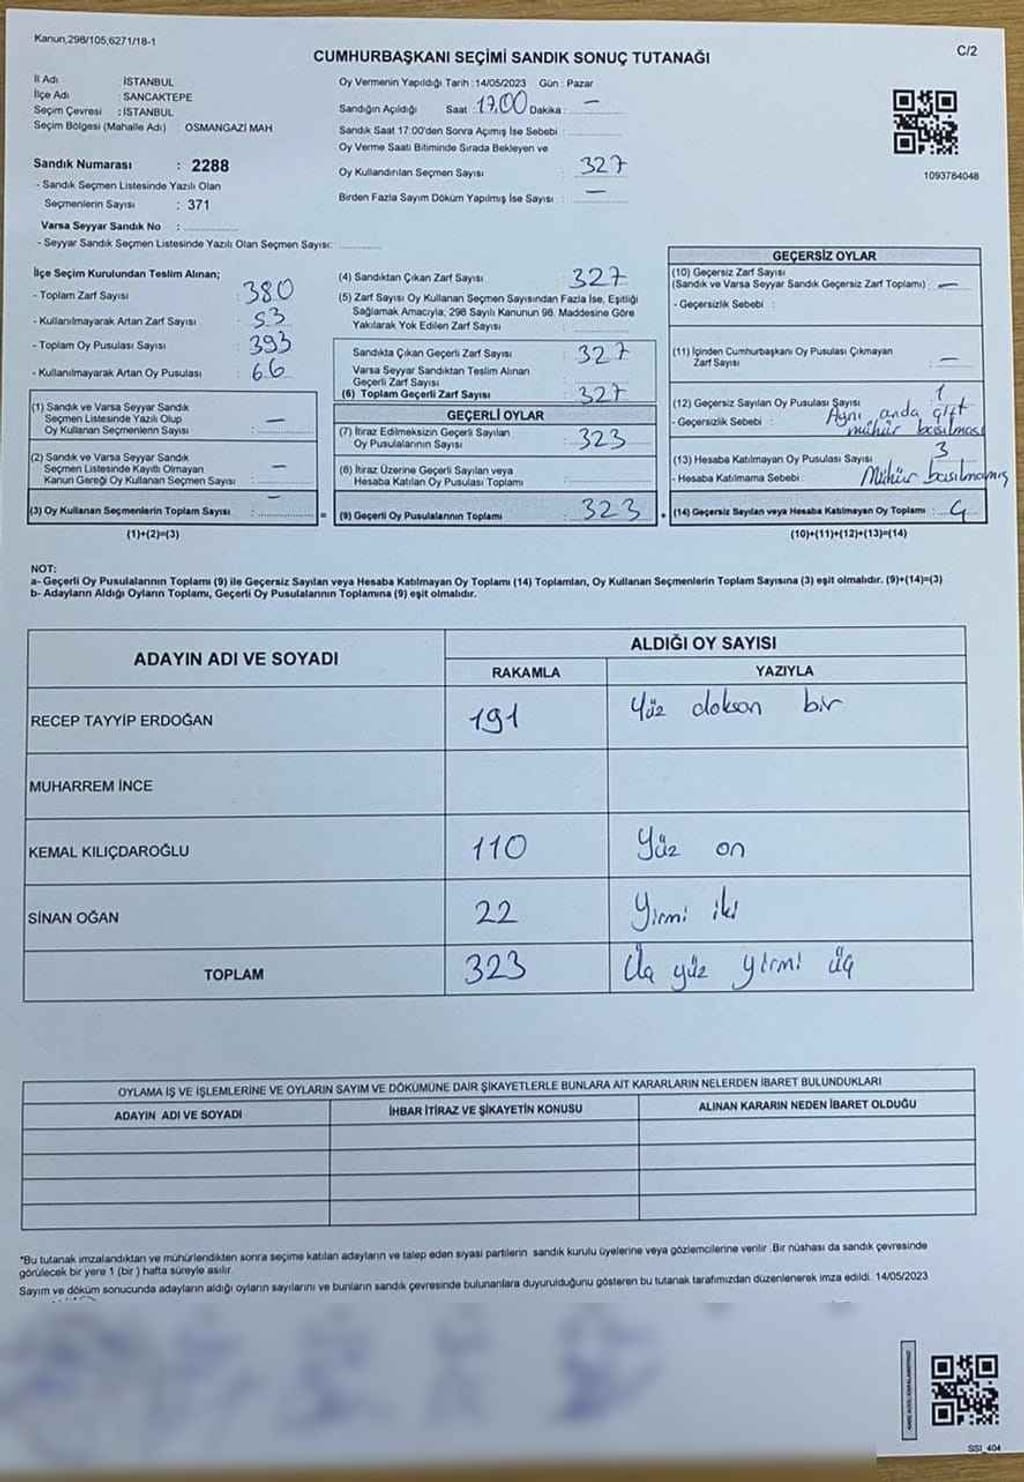 Kanun,298/105,6271/18-1
C/2
CUMHURBAŞKANI SEÇİMİ SANDIK SONUÇ TUTANAĞI
İl Adı : İSTANBUL
İlçe Adı : SANCAKTEPE
Seçim Çevresi : İSTANBUL
Seçim Bölgesi (Mahalle Adı) : OSMANGAZİ MAH
Sandık Numarası : 2288
- Sandık Seçmen Listesinde Yazılı Olan
Seçmenlerin Sayısı : 371
Varsa Seyyar Sandık No :
- Seyyar Sandık Seçmen Listesinde Yazılı Olan Seçmen Sayısı:
Oy Vermenin Yapıldığı Tarih : 14/05/2023 Gün : Pazar
Sandığın Açıldığı Saat : 17.00 Dakika : —
Sandık Saat 17:00'den Sonra Açımış İse Sebebi :
Oy Verme Saati Bitiminde Sırada Bekleyen ve
Oy Kullandırılan Seçmen Sayısı : 327
Birden Fazla Sayım Döküm Yapılmış İse Sayısı : —
1093784048
İlçe Seçim Kurulundan Teslim Alınan;
- Toplam Zarf Sayısı : 380
- Kullanılmayarak Artan Zarf Sayısı : 53
- Toplam Oy Pusulası Sayısı : 393
- Kullanılmayarak Artan Oy Pusulası : 66
(1) Sandık ve Varsa Seyyar Sandık
Seçmen Listesinde Yazılı Olup
Oy Kullanan Seçmenlerin Sayısı : —
(2) Sandık ve Varsa Seyyar Sandık
Seçmen Listesinde Kayıtlı Olmayan
Kanun Gereği Oy Kullanan Seçmen Sayısı : —
(3) Oy Kullanan Seçmenlerin Toplam Sayısı : —
(1)+(2)=(3)
(4) Sandıktan Çıkan Zarf Sayısı : 327
(5) Zarf Sayısı Oy Kullanan Seçmen Sayısından Fazla İse, Eşitliği
Sağlamak Amacıyla; 298 Sayılı Kanunun 98. Maddesine Göre
Yakılarak Yok Edilen Zarf Sayısı :
Sandıkta Çıkan Geçerli Zarf Sayısı : 327
Varsa Seyyar Sandıktan Teslim Alınan
Geçerli Zarf Sayısı :
(6) Toplam Geçerli Zarf Sayısı : 327
GEÇERLİ OYLAR
(7) İtiraz Edilmeksizin Geçerli Sayılan
Oy Pusulalarının Sayısı : 323
(8) İtiraz Üzerine Geçerli Sayılan veya
Hesaba Katılan Oy Pusulası Toplamı :
= (9) Geçerli Oy Pusulalarının Toplamı : 323
GEÇERSİZ OYLAR
(10) Geçersiz Zarf Sayısı
(Sandık ve Varsa Seyyar Sandık Geçersiz Zarf Toplamı) : —
- Geçersizlik Sebebi :
(11) İçinden Cumhurbaşkanı Oy Pusulası Çıkmayan
Zarf Sayısı : —
(12) Geçersiz Sayılan Oy Pusulası Sayısı : 1
- Geçersizlik Sebebi : Aynı anda çift
mühür basılması
(13) Hesaba Katılmayan Oy Pusulası Sayısı : 3
- Hesaba Katılmama Sebebi : Mühür basılmamış
+ (14) Geçersiz Sayılan veya Hesaba Katılmayan Oy Toplamı : 4
(10)+(11)+(12)+(13)=(14)
NOT:
a- Geçerli Oy Pusulalarının Toplamı (9) ile Geçersiz Sayılan veya Hesaba Katılmayan Oy Toplamı (14) Toplamları, Oy Kullanan Seçmenlerin Toplam Sayısına (3) eşit olmalıdır. (9)+(14)=(3)
b- Adayların Aldığı Oyların Toplamı, Geçerli Oy Pusulalarının Toplamına (9) eşit olmalıdır.
ADAYIN ADI VE SOYADI
ALDIĞI OY SAYISI
RAKAMLA YAZIYLA
RECEP TAYYİP ERDOĞAN 191 Yüz doksan bir
MUHARREM İNCE
KEMAL KILIÇDAROĞLU 110 Yüz on
SİNAN OĞAN 22 Yirmi iki
TOPLAM 323 Üç yüz yirmi üç
OYLAMA İŞ VE İŞLEMLERİNE VE OYLARIN SAYIM VE DÖKÜMÜNE DAİR ŞİKAYETLERLE BUNLARA AİT KARARLARIN NELERDEN İBARET BULUNDUKLARI
ADAYIN ADI VE SOYADI İHBAR İTİRAZ VE ŞİKAYETİN KONUSU ALINAN KARARIN NEDEN İBARET OLDUĞU
*Bu tutanak imzalandıktan ve mühürlendikten sonra seçime katılan adayların ve talep eden siyasi partilerin sandık kurulu üyelerine veya gözlemcilerine verilir. Bir nüshası da sandık çevresinde
görülecek bir yere 1 (bir) hafta süreyle asılır.
Sayım ve döküm sonucunda adayların aldığı oyların sayılarını ve bunların sandık çevresinde bulunanlara duyurulduğunu gösteren bu tutanak tarafımızdan düzenlenerek imza edildi. 14/05/2023
SSI_404